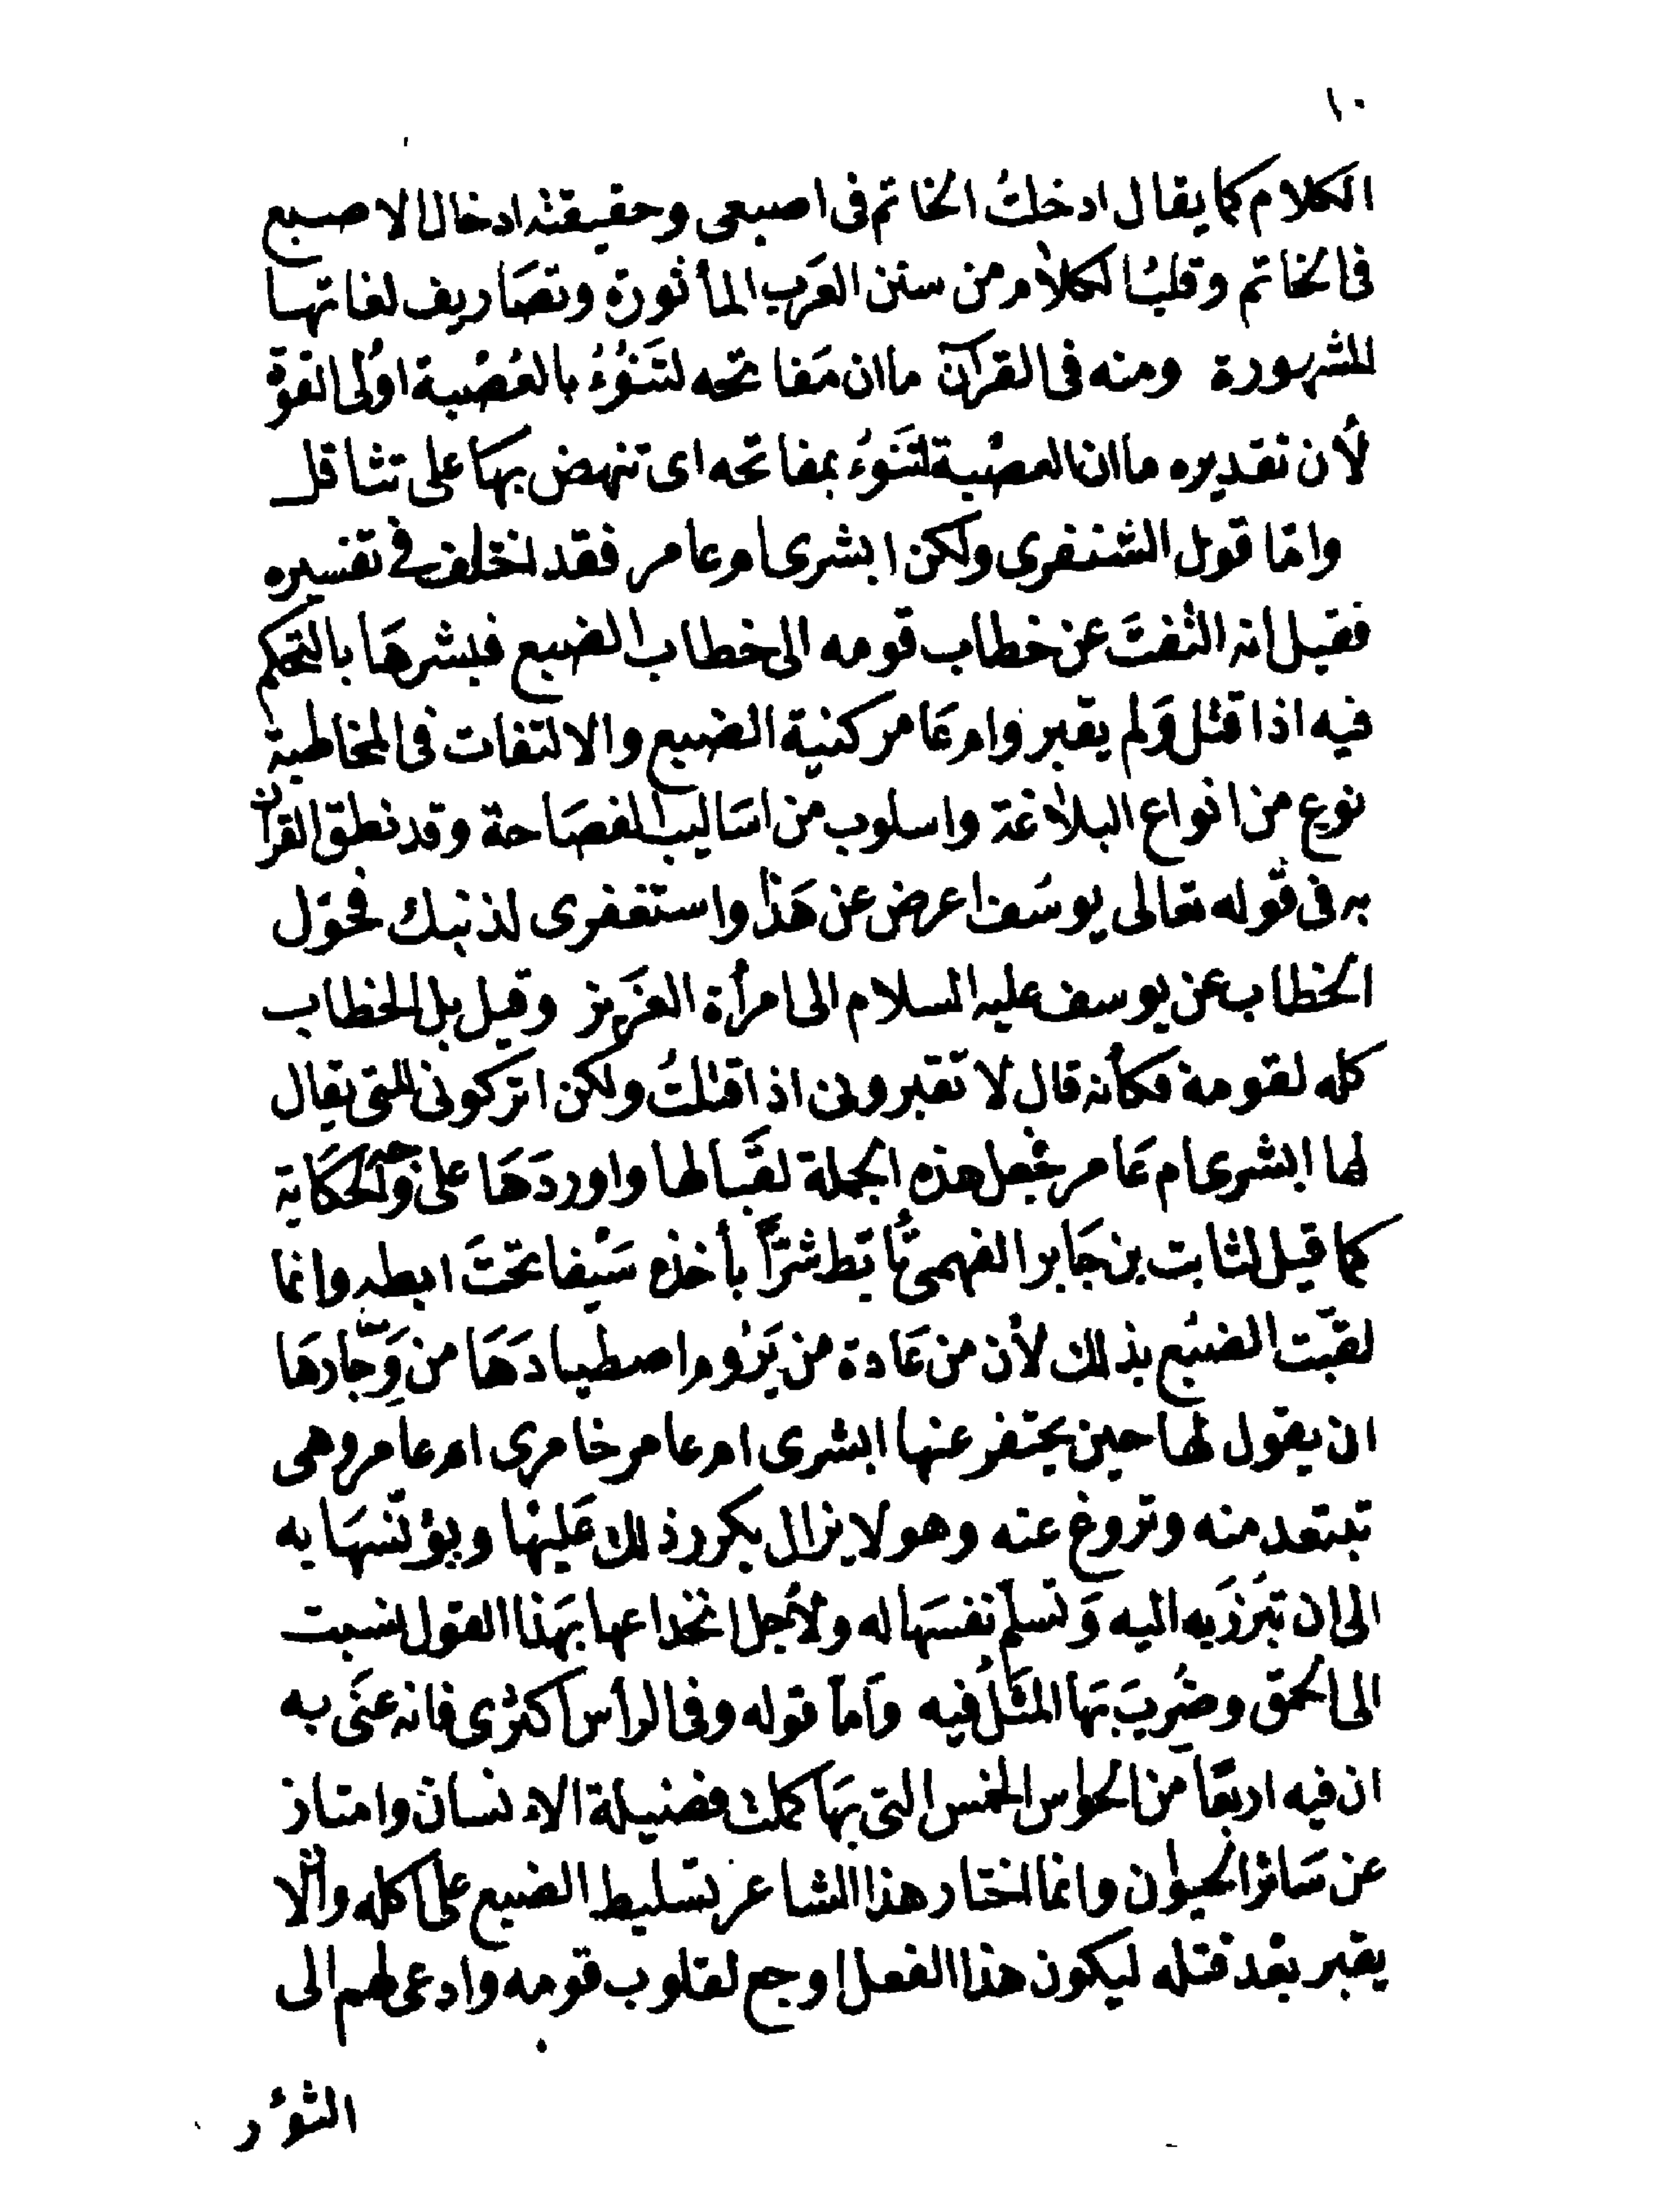 ١٠
الكلام كما يقال ادخلتُ الخاتم فى اصبعى وحقيقته ادخال الاصبع
فى الخاتم وقلبُ الكلام من سنن العَرب المأثورة وتصَاريف لغاتها
المشهورة ومنه فى القرآن ما ان مَفاتحه لتَنُوءُ بالعُصْبة اولى القوة
لأن تقديره ما ان العصْبة لتَنوءُ بمفاتحه اى تنهض بهَا على تثاقل
وامّا قول الشنفرى ولكن ابشرى ام عامر فقد اختلف فى تفسيره
فقيل انه التفتَ عن خطاب قومه الى خطاب الضبع فبشرهَا بالتحكم
فيه اذا قتل وَلم يقبر وام عَامر كنية الضبع والالتفات فى المخاطبة
نوع من انواع البلاغة واسلوب من اسَاليب الفصَاحة وقد نطق القرآن
به فى قوله تعالى يوسُف اعرض عن هَذا واستغفرى لذنبك فحوّل
الخطاب عن يوسف عليه السلام الى امرأة العَزيز وقيل بل الخطاب
كله لقومه فكأنه قال لا تقبرونى اذا قتلتُ ولكن اتركونى للتى يقال
لها ابشرى ام عَامر فجعل هذه الجملة لقَبا لها واوردَهَا على وَجه الحكَاية
كما قيل لثابت بن جَابر الفهمى تأبّط شرّاً بأخذه سَيْفا تحتَ ابطه وانما
لقبّت الضبُع بذلك لأن من عَادة من يَرُوم اصطيادَهَا من وِجَارهَا
ان يقول لها حين يحتفر عنها ابشرى ام عامر خامرى ام عامر وهى
تبتعد منه وتروغ عنه وهو لا يزال يكرر ذلك عَليْها ويؤنّسهَا به
الى ان تبرُزَ به اليه وَتسلّم نفسَها له ولأجل انخداعها بهَذا القول نسبت
الى الحمق وضُربَ بهَا المثَلُ فيه وَامّا قوله وفى الرأس اكثرى فانه عنَى به
ان فيه اربعًا من الحواس الخمس التى بهَا كملت فضيلة الانسان وامتاز
عن سَائر الحيوان وانما اختار هذا الشاعر تسليط الضبع على اكله وألّا
يقبر بعْد قتله ليكون هذا الفعل اوجع لقلوب قومه وادعى لهم الى
الثؤر